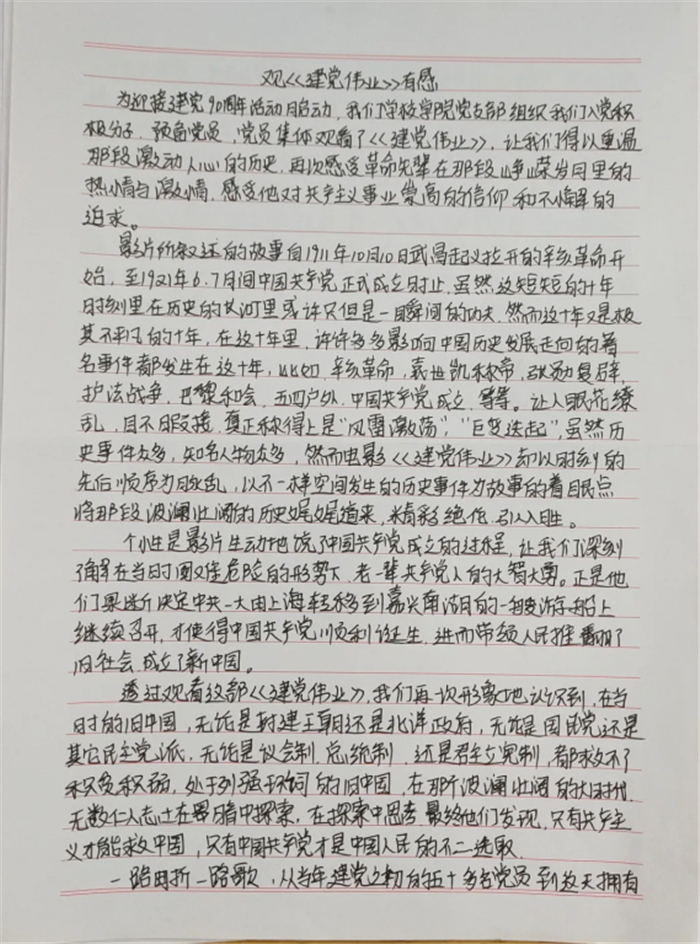 观《建党伟业》有感
为迎接建党90周年活动启动，我们学校学院党支部组织我们入党积
极分子、预备党员、党员集体观看了《建党伟业》，让我们得以重温
那段激动人心的历史，再次感受革命先辈在那段峥嵘岁月里的
热情与激情，感受他对共产主义事业崇高的信仰和不懈的
追求。
影片所叙述的故事自1911年10月10日武昌起义拉开的辛亥革命开
始，至1921年6.7月间中国共产党正式成立时止，虽然这短短的十年
时刻里在历史的长河里或许只但是一瞬间的功夫，然而这十年又是极
其不平凡的十年，在这十年里，许许多多影响中国历史发展走向的著
名事件都发生在这十年，比如，辛亥革命，袁世凯称帝，张勋复辟
护法战争，巴黎和会，五四户外，中国共产党成立，等等。让人眼花缭
乱，目不暇接，真正称得上是“风雷激荡”，“巨变迭起”，虽然历
史事件众多，知名人物众多，然而电影《建党伟业》却以时刻的
先后顺序为脉乱，以不一样空间发生的历史事件为故事的着眼点
将那段波澜壮阔的历史娓娓道来，精彩绝伦，引人入胜。
个性是影片生动地说了中国共产党成立的过程，让我们深刻
了解在当时困难危险的形势下，老一辈共产党人的大智大勇。正是他
们果断决定中共一大由上海转移到嘉兴南湖的一艘游船上
继续召开，才使得中国共产党顺利诞生，进而带领人民推翻了
旧社会，成立了新中国。
透过观看这部《建党伟业》，我们再一次形象地认识到，在当
时的旧中国，无论是封建王朝还是北洋政府，无论是国民党还是
其它民主党派，无论是议会制，总统制，还是君主立宪制，都救不了
积贫积弱，处于列强环伺的旧中国，在那个波澜壮阔的大时代，
无数仁人志士在黑暗中探索，在探索中思考，最终他们发现，只有共产主
义才能救中国，只有中国共产党才是中国人民的不二选取
一路曲折一路歌，从当年建党之初的五十多名党员到这天拥有